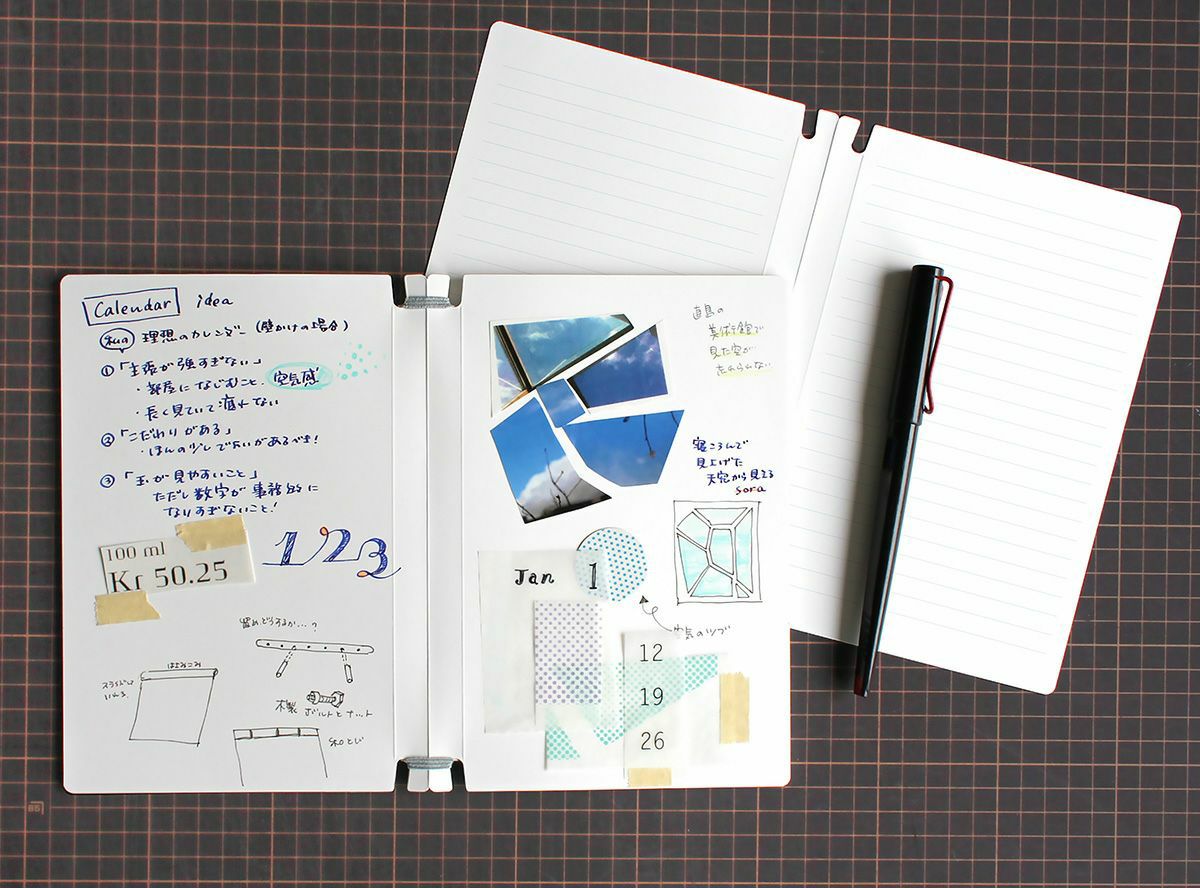 Calendar idea
私の 理想のカレンダー (壁かけの場合)
①「主張が強すぎない」
・部屋になじむこと. 空気感
・長く見ていて疲れない
②「こだわりがある」
・ほんの少しでいいがあるべき!
③「玉が見やすいこと」
ただし数字が事務的に
なりすぎないこと!
100 ml
Kr 50.25
123
留めどうするか…?
はさみこみ
スライドして
いれる
木製 ボルトとナット
和とじ
直島の
美術館で
見た空が
忘れられない
寝ころんで
見上げた
天窓から見える
sora
Jan 1
空気のツブ
12
19
26
B5